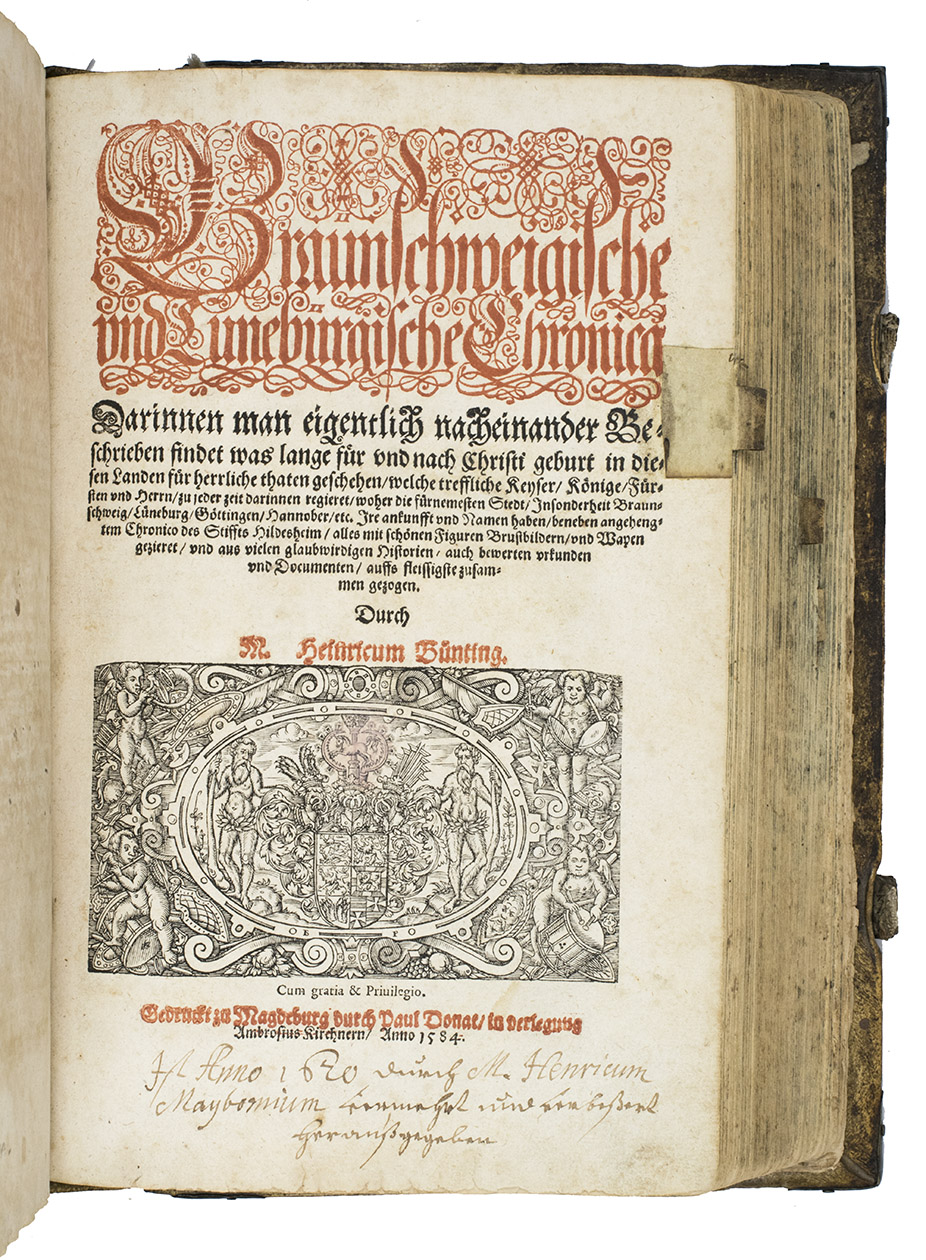 Braunschweigische
vnd Lüneburgische Chronica
Darinnen man eigentlich nacheinander Be-
schrieben findet was lange für vnd nach Christi geburt in die-
sen Landen für herrliche thaten geschehen/welche treffliche Keyser/ Könige/Für-
sten vnd Herrn/zu jeder zeit darinnen regieret/woher die fürnemesten Stedt/Insonderheit Braun-
schweig/Lüneburg/Göttingen/Hannober/etc. Ire ankunfft vnd Namen haben/beneben angeheng-
tem Chronico des Stiffts Hildesheim/ alles mit schönen Figuren Brustbildern/vnd Wapen
gezieret/ vnd aus vielen glaubwirdigen Historien/ auch bewerten vrkunden
vnd Documenten/ auffs fleissigste zusam-
men gezogen.
Durch
M. Heinricum Bünting.
Cum gratia & Priuilegio.
Gedruckt zu Magdeburg durch Paul Donat/ in verlegung
Ambrosius Kirchnern/ Anno 1584.
Ist Anno 1620 durch M. Henricum
Maybomium vermehrt und verbeßert
heraußgegeben